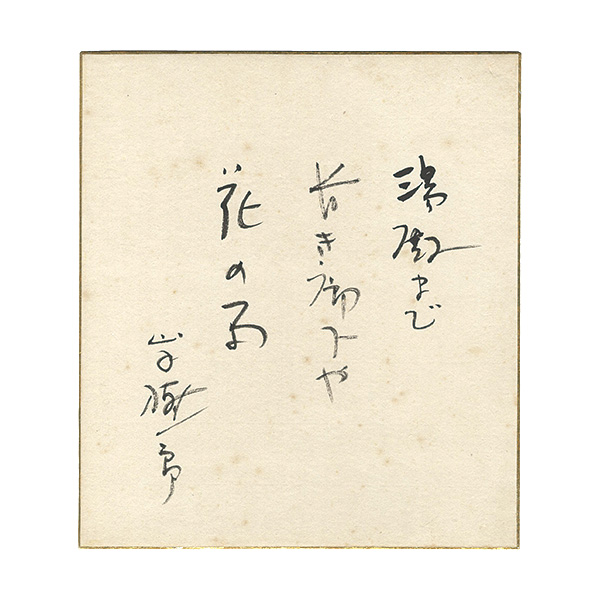 湯殿まで
長き廊下や
花の雨
一郎